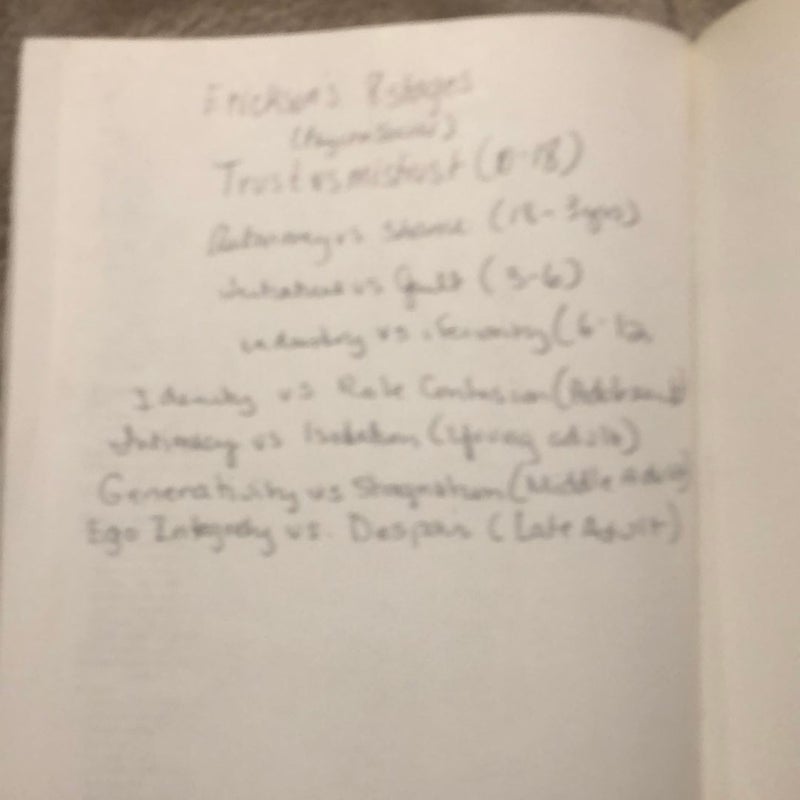 Erickson's 8 stages
(Psychosocial)
Trust vs mistrust (0-18)
Autonomy vs Shame (18-3yrs)
Initiative vs Guilt (3-6)
vs. (6-12
Identity vs Role Confusion (Adolescent
Intimacy vs Isolation (Young adult)
Generativity vs Stagnation (Middle Adult)
Ego Integrity vs. Despair (Late Adult)